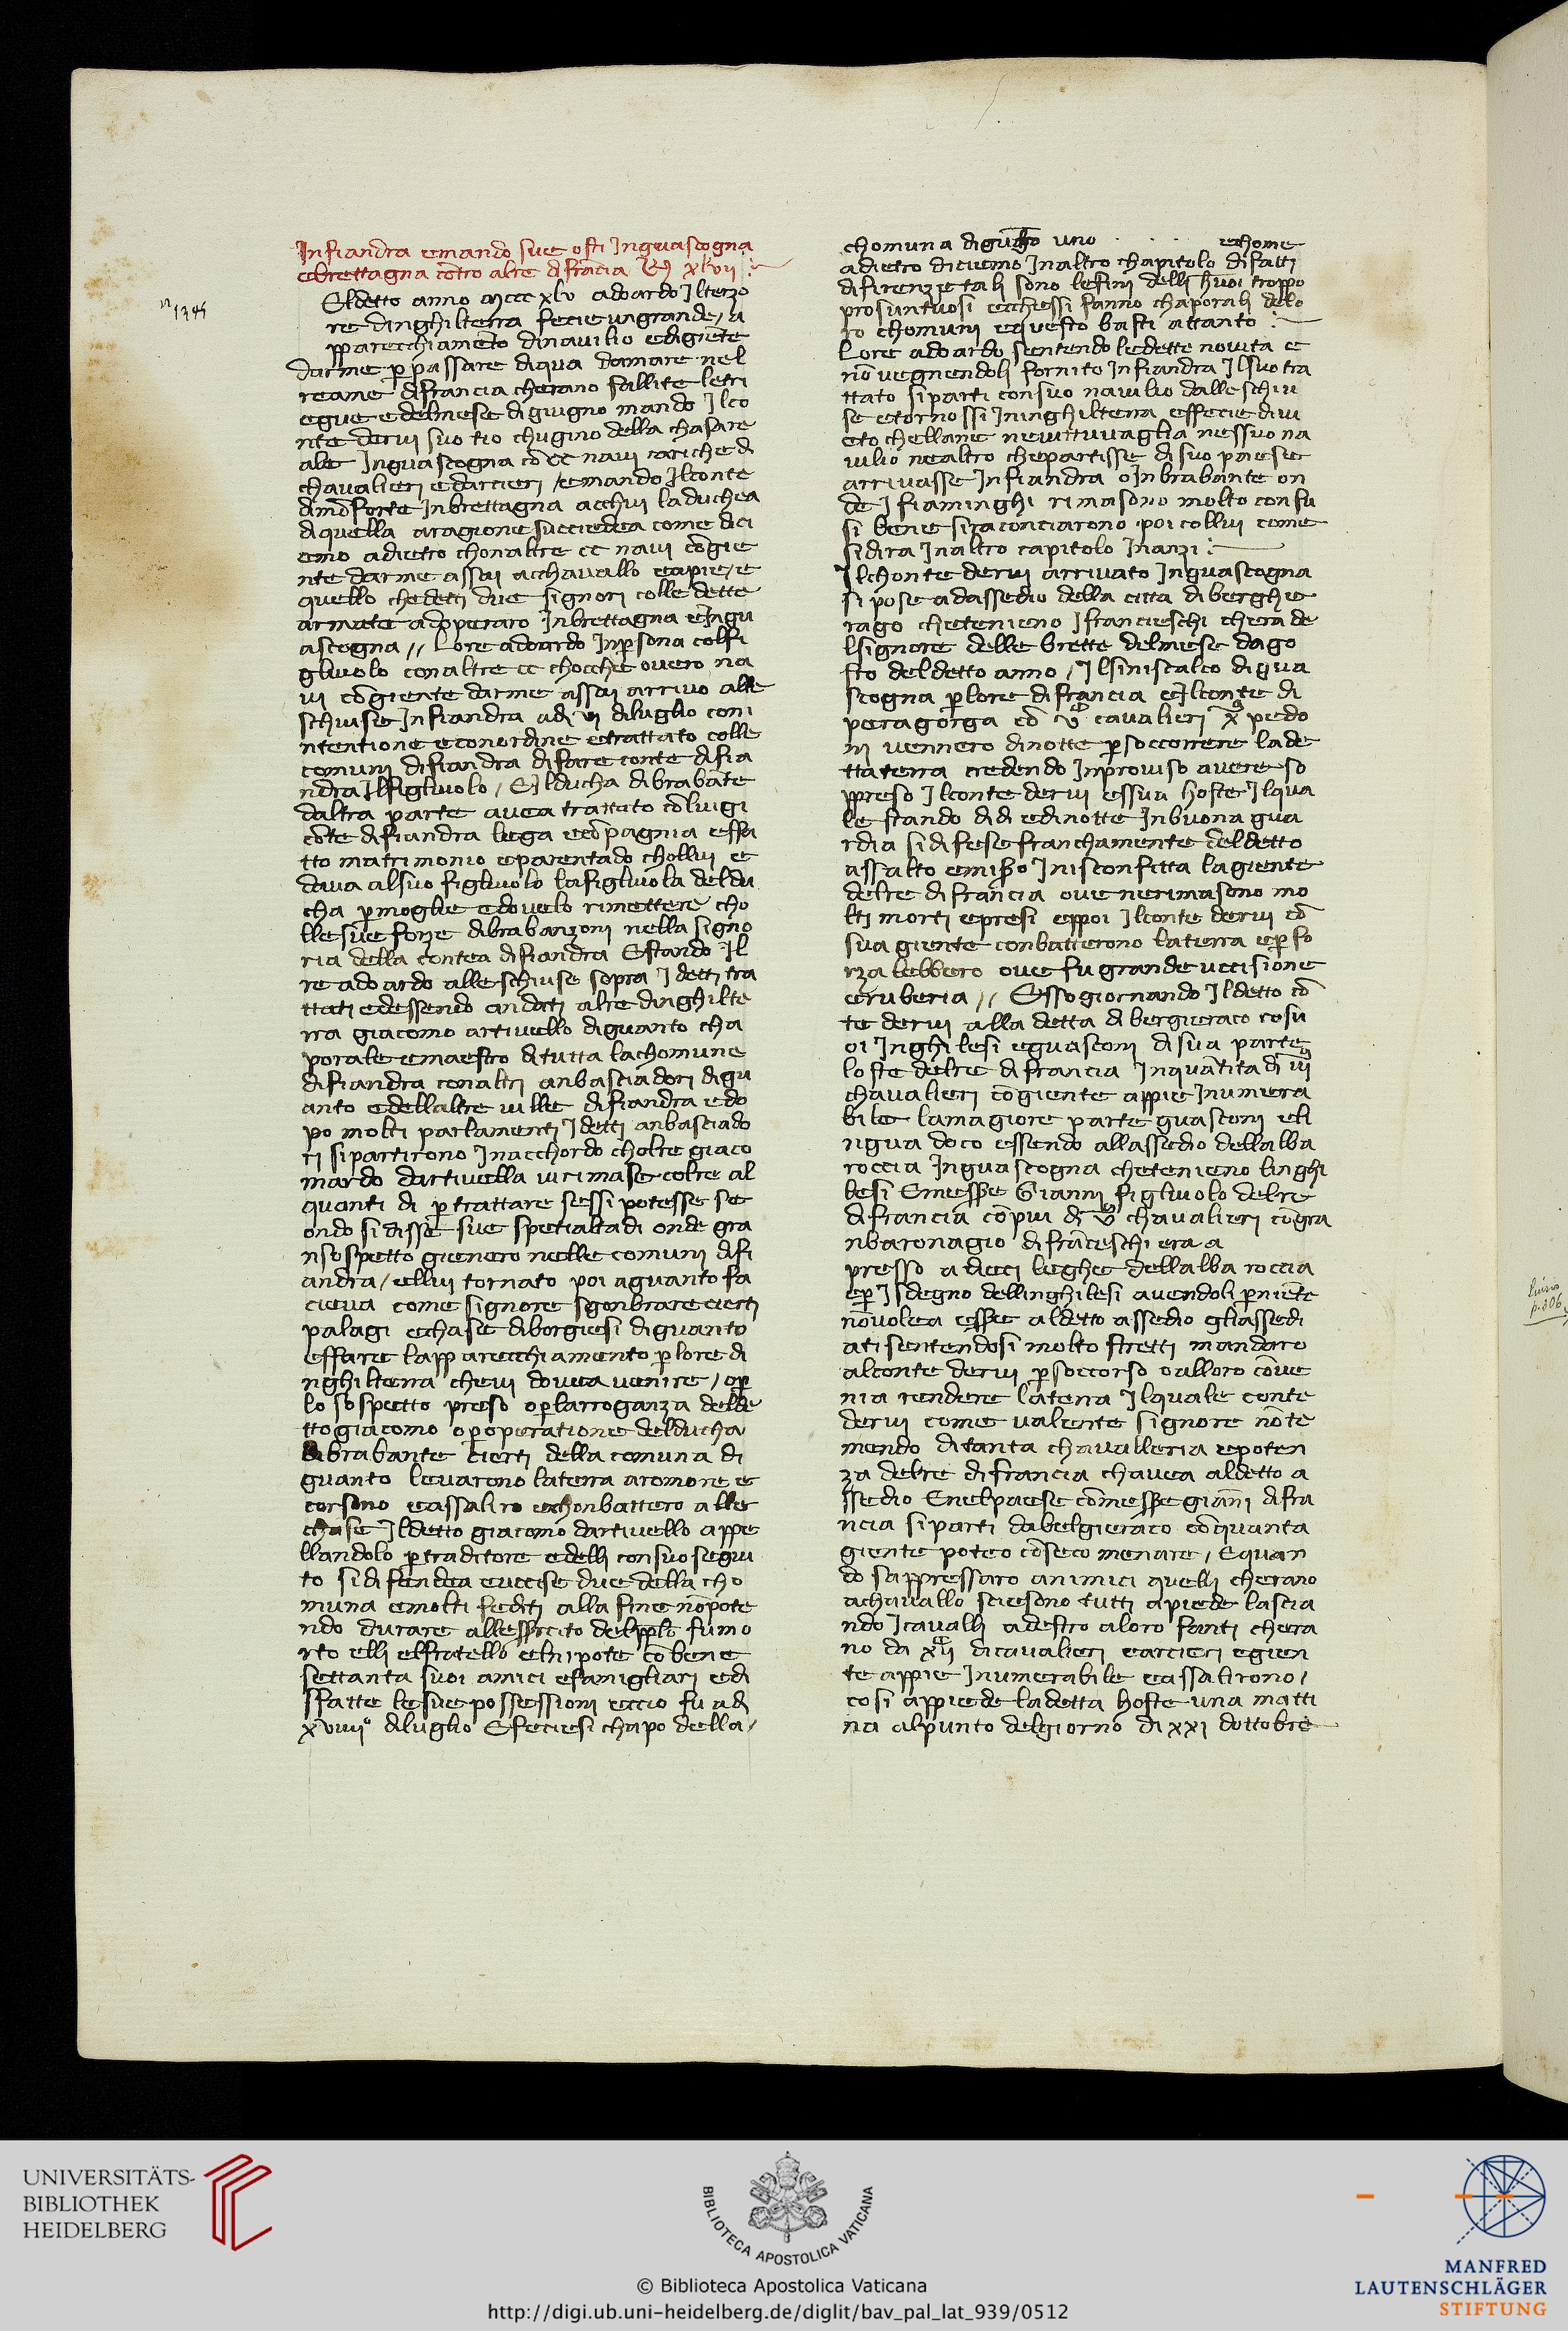 Jnfiandra emando sue osti Jnguascogna
ebrettagna cōtro alre difrācia xlvii
n 1345
Eldetto anno mccc xlv adoardo Jlterzo
re dinghilterra fecie ungrande / a
pparecchiamēto dinauilio edigiēte
darme p passare diqua damare nel
reame difrancia cherano fallite letri
egue edelmese digiugno mando Jlco
nte derui suo tio chugino della chasare
ale Jnguascogna cō cc naui cariche di
chaualieri edarcieri / emando Jlconte
dimōforte Jnbrettagna acchui laduchea
diquella aragione succiedea come dici
emo adietro chonaltre cc naui cōgie
nte darme assai acchauallo eapie / e
quello chedetti due signori colle dette
armate adoperaro Jnbrettagna eJngu
ascogna // Lore adoardo Jnpsona colfi
gliuolo conaltre cc chocche ouero na
ui cōgiente darme assai arriuo alle
schiuse Jnfiandra adi vi diluglio coni
ntentione econordine etrattato colle
comuni difiandra difare conte difia
ndra Jlfigliuolo / EJlducha dibrabāte
daltra parte auea trattato cōluigi
cōte difiandra lega ecōpagnia effa
tto matrimonio eparentado chollui e
daua alsuo figliuolo lafigliuola deldu
cha pmoglie edouelo rimettere cho
lle sue forze dibrabanzoni nella signo
ria della contea difiandra Estando Jl
re adoardo alleschiuse sopra J detti tra
ttati edessendo andati alre dinghilte
rra giacomo artiuello diguanto cha
porale emaestro ditutta lachomune
difiandra conaltri anbasciadori digu
anto edellaltre uille difiandra edo
po molti parlamenti Jdetti anbasciado
ri sipartirono Jnacchordo cholre giaco
mardo dartiuella uirimase colre al
quanti di ptrattare sessi potesse se
ondo sidisse sue spetialtadi onde gra
nsospetto gienero nelle comuni difi
andra / ellui tornato poi aguanto fa
cieua come signore sgonbrare cierti
palagi echase diborgiesi diguanto
effare lapparecchiamento plore di
nghilterra cheui douea uenire / op
lo sospetto preso oplarroganza delde
ttogiacomo opoperatione delducha
dibrabante cierti della comuna di
guanto leuarono laterra aromore e
corsono eassaliro echonbattero alle
chase Jldetto giacomo dartiuello appe
llandolo ptraditore edelli consuo segui
to sidifendea euccise due della cho
muna emolti fediti alla fine nōpote
ndo durare allessrcito delpplo fumo
rto elli elfratello elnipote cō bene
settanta suoi amici efamigliari edi
sfatte lesuepossessioni eccio fu adi
xviiii° diluglio Efeciesi chapo della /
chomuna diguāto uno . . . echome
adietro diciemo Jnaltro chapitolo difatti
difirenze tali sono lefini delli huōi troppo
prosuntuosi ecchessi fanno chaporali delo
ro chomuni equesto basti attanto
Lore adoardo sentendo ledette nouita e
nō uegnendoli fornito Jnfiandra Jlsuo tra
ttato siparti consuo nauilio dalleschiu
se etornossi Jninghilterra effecie diui
eto chellane neuittuuaglia nessuo na
uilio nealtro chepartisse disuo paese
arriuasse Jnfiandra oJnbrabante on
de J fiaminghi rimasono molto confu
si bene siraconciarono poi collui come
sidira Jnaltro capitolo Jnanzi
Jlchonte derui arriuato Jnguascogna
sipose adassedio della citta diberghe
rago chetenieno Jfrancieschi chera de
lsignore delle brette delmese dago
sto deldetto anno / Jlsiniscalco digua
scogna plore difrancia eJlconte di
peragorga cō v cavalieri x pedo
ni uennero dinotte psoccorrere lade
ttaterra credendo Jnprouiso auere so
ppreso Jlconte derui essua hoste Jlqua
le stando didi edinotte Jnbuona gua
rdia sidifese franchamente deldetto
assalto emiso Jnisconfitta lagiente
delre difrancia oue nerimasono mo
lti morti epresi eppoi Jlconte derui cō
sua giente conbatterono laterra epfo
rza lebbero oue fu grande uccisione
eruberia // Essogiornando Jldetto cō
te derui alla detta dibergieraco cosu
oi Jnghilesi eguasconi disua parte
loste delre difrancia Jnquātita di viii
chaualieri cōgiente appie Jnumera
bile lamagiore parte guasconi eli
ngua doco essendo allassedio dellalba
roccia Jnguascogna chetenieno linghi
lesi Emesse Gianni figliuolo delre
difrancia cōpiu di v chaualieri cōgra
nbaronagio difrāceschi era a
presso adieci leghe dellalba roccia
ep Jsdegno dellinghilesi auendoli pniēte
nōuolea esse aldetto assedio gliassedi
ati sentendosi molto stretti mandaro
alconte derui psoccorso oalloro cōue
nia rendere laterra Jlquale conte
derui come ualente signore nōte
mendo ditanta chaualleria epoten
za delre difrancia chauea aldetto a
ssedio Enelpaese cōmesse giāni difra
ncia siparti dabelgieraco cōquanta
giente poteo cōseco menare / Equan
do sappressaro animici quelli cherano
achauallo sciesono tutti apiede lascia
ndo Jcaualli adestro aloro fanti chera
no da xii dicaualieri earcieri egien
te appie Jnumerabile eassalirono /
cosi appiede ladetta hoste una matti
na alpunto delgiorno di xxi dottobre
p.306
UNIVERSITÄTS-
BIBLIOTHEK
HEIDELBERG
BIBLIOTECA APOSTOLICA VATICANA
© Biblioteca Apostolica Vaticana
http://digi.ub.uni-heidelberg.de/diglit/bav_pal_lat_939/0512
MANFRED
LAUTENSCHLÄGER
STIFTUNG